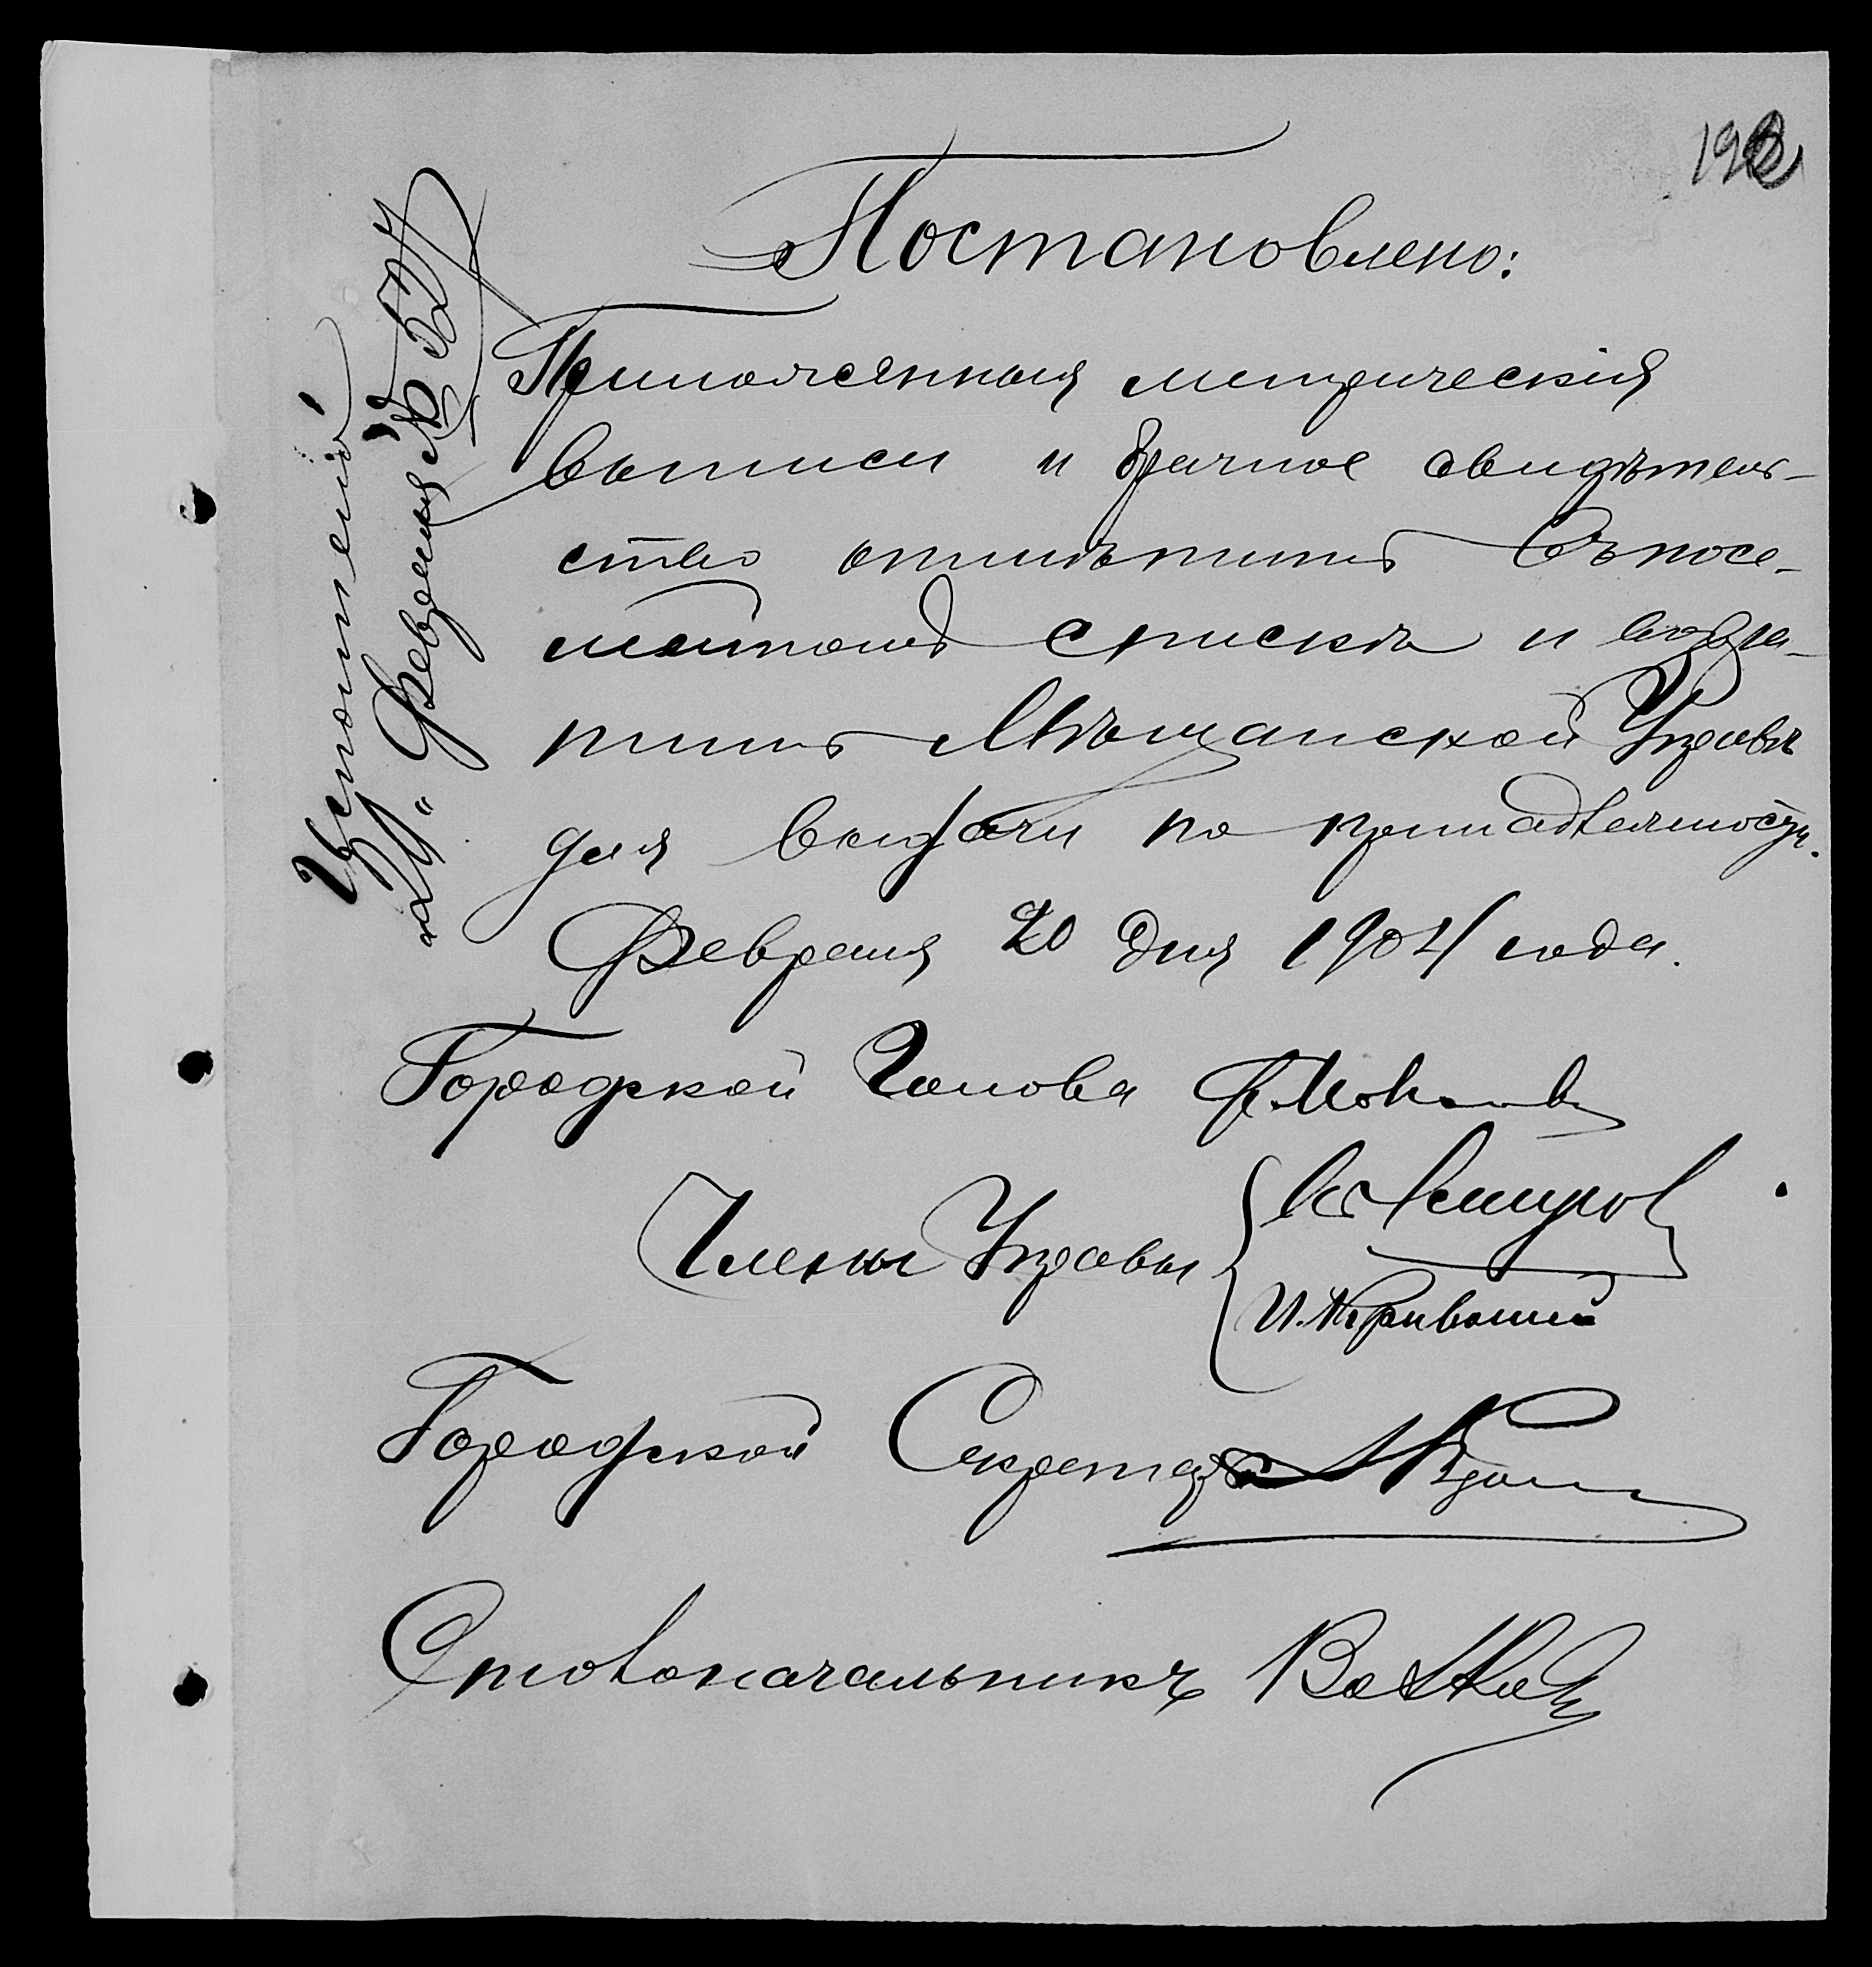 Постановлено:
Приложенныя метрическія
выписи и брачное свидѣтель-
ство отмѣтить въ посе-
мейномъ спискѣ и возвра-
тить Мѣщанской Управѣ
для выдачи по принадлежности.
Февраля 20 дня 1904 года.
Городской Голова
Члены Управы
Городской Секретарь
Столоначальникъ
Исполнено
Февраля №